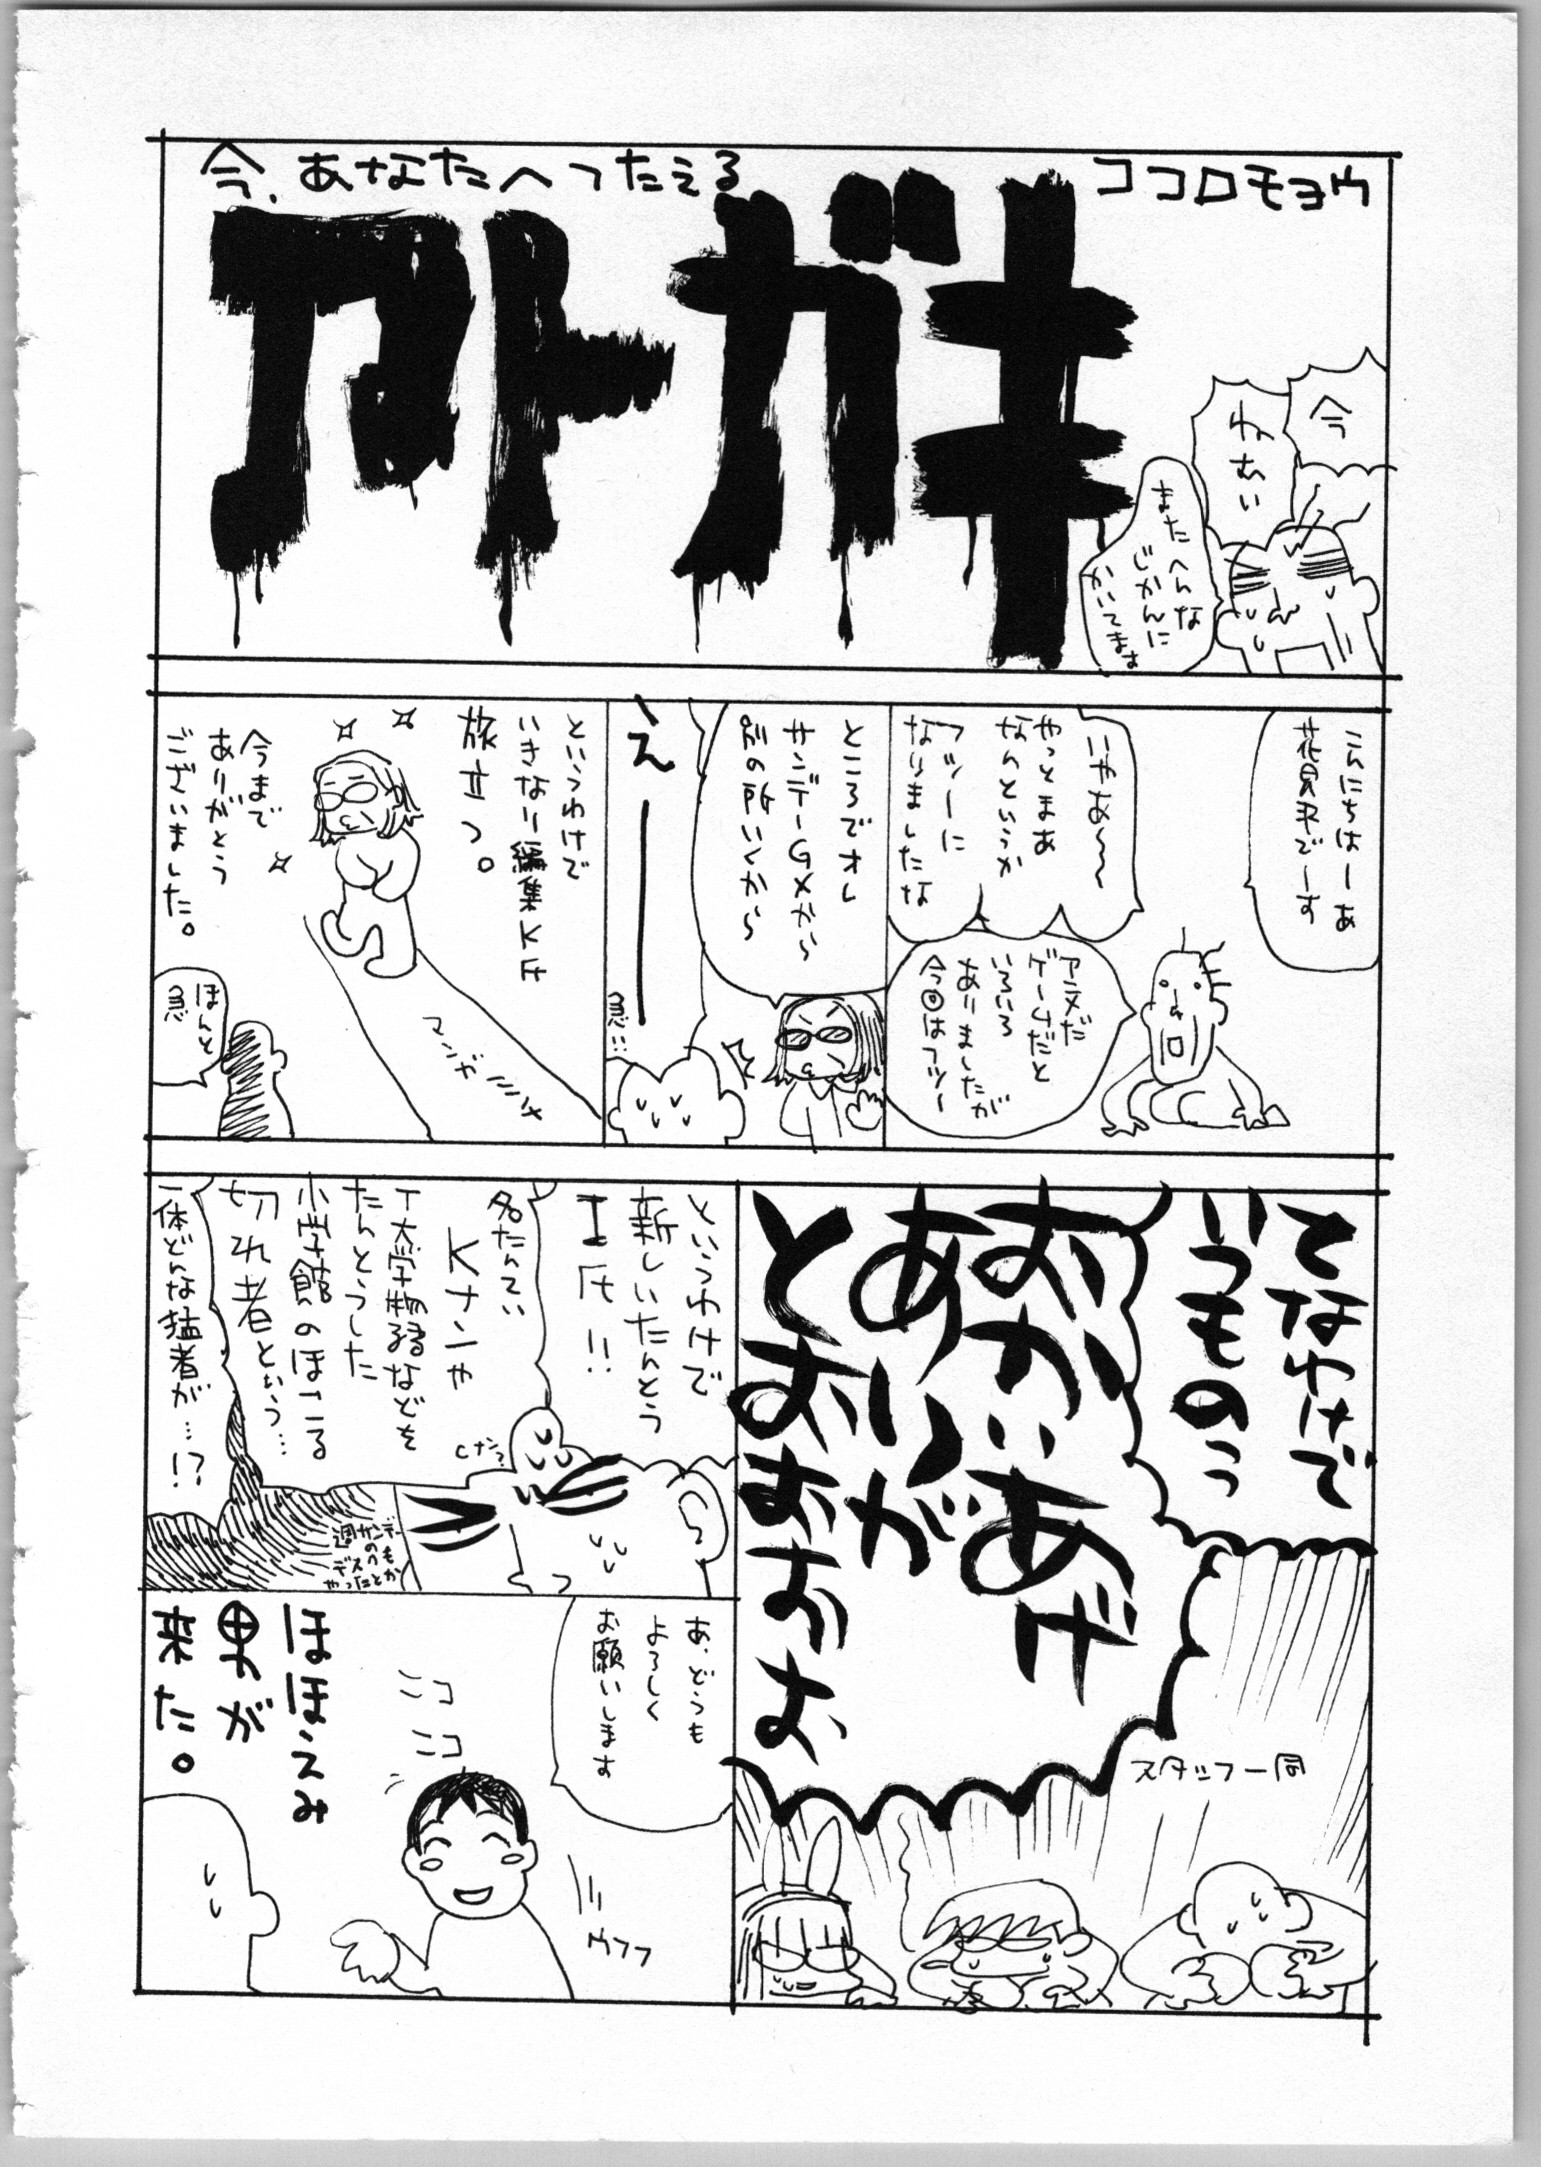 今、あなたへつたえる
ココロモヨウ
アトガキ
今
ねむい
またへんな
じかんに
かいてます
こんにちはーあ
花見沢でーす
いやあ〜〜
やっとまあ
なんというか
フツーに
なりましたな
アニメだ
ゲームだと
いろいろ
ありましたが
今回はフツー
ところでオレ
サンデーGXから
別の所いくから
え――
急…
というわけで
いきなり編集K氏
旅立つ。
今まで
ありがとう
ございました。
ほんと
急
となわけで
いつものっ
おかいあげ
ありが
とおおおおよ
スタッフ一同
というわけで
新しいたんとう
I氏!!
名たんてい
Kナンや
T大学物語などを
たんとうした
小学館のほこる
切れ者という…
一体どんな猛者が…!?
Cナン?
週サンデー
のも
デスク
やったとか
あ、どうも
よろしく
お願いします
ニコ
ニコ
ウフフ
ほほえみ
男が
来た。